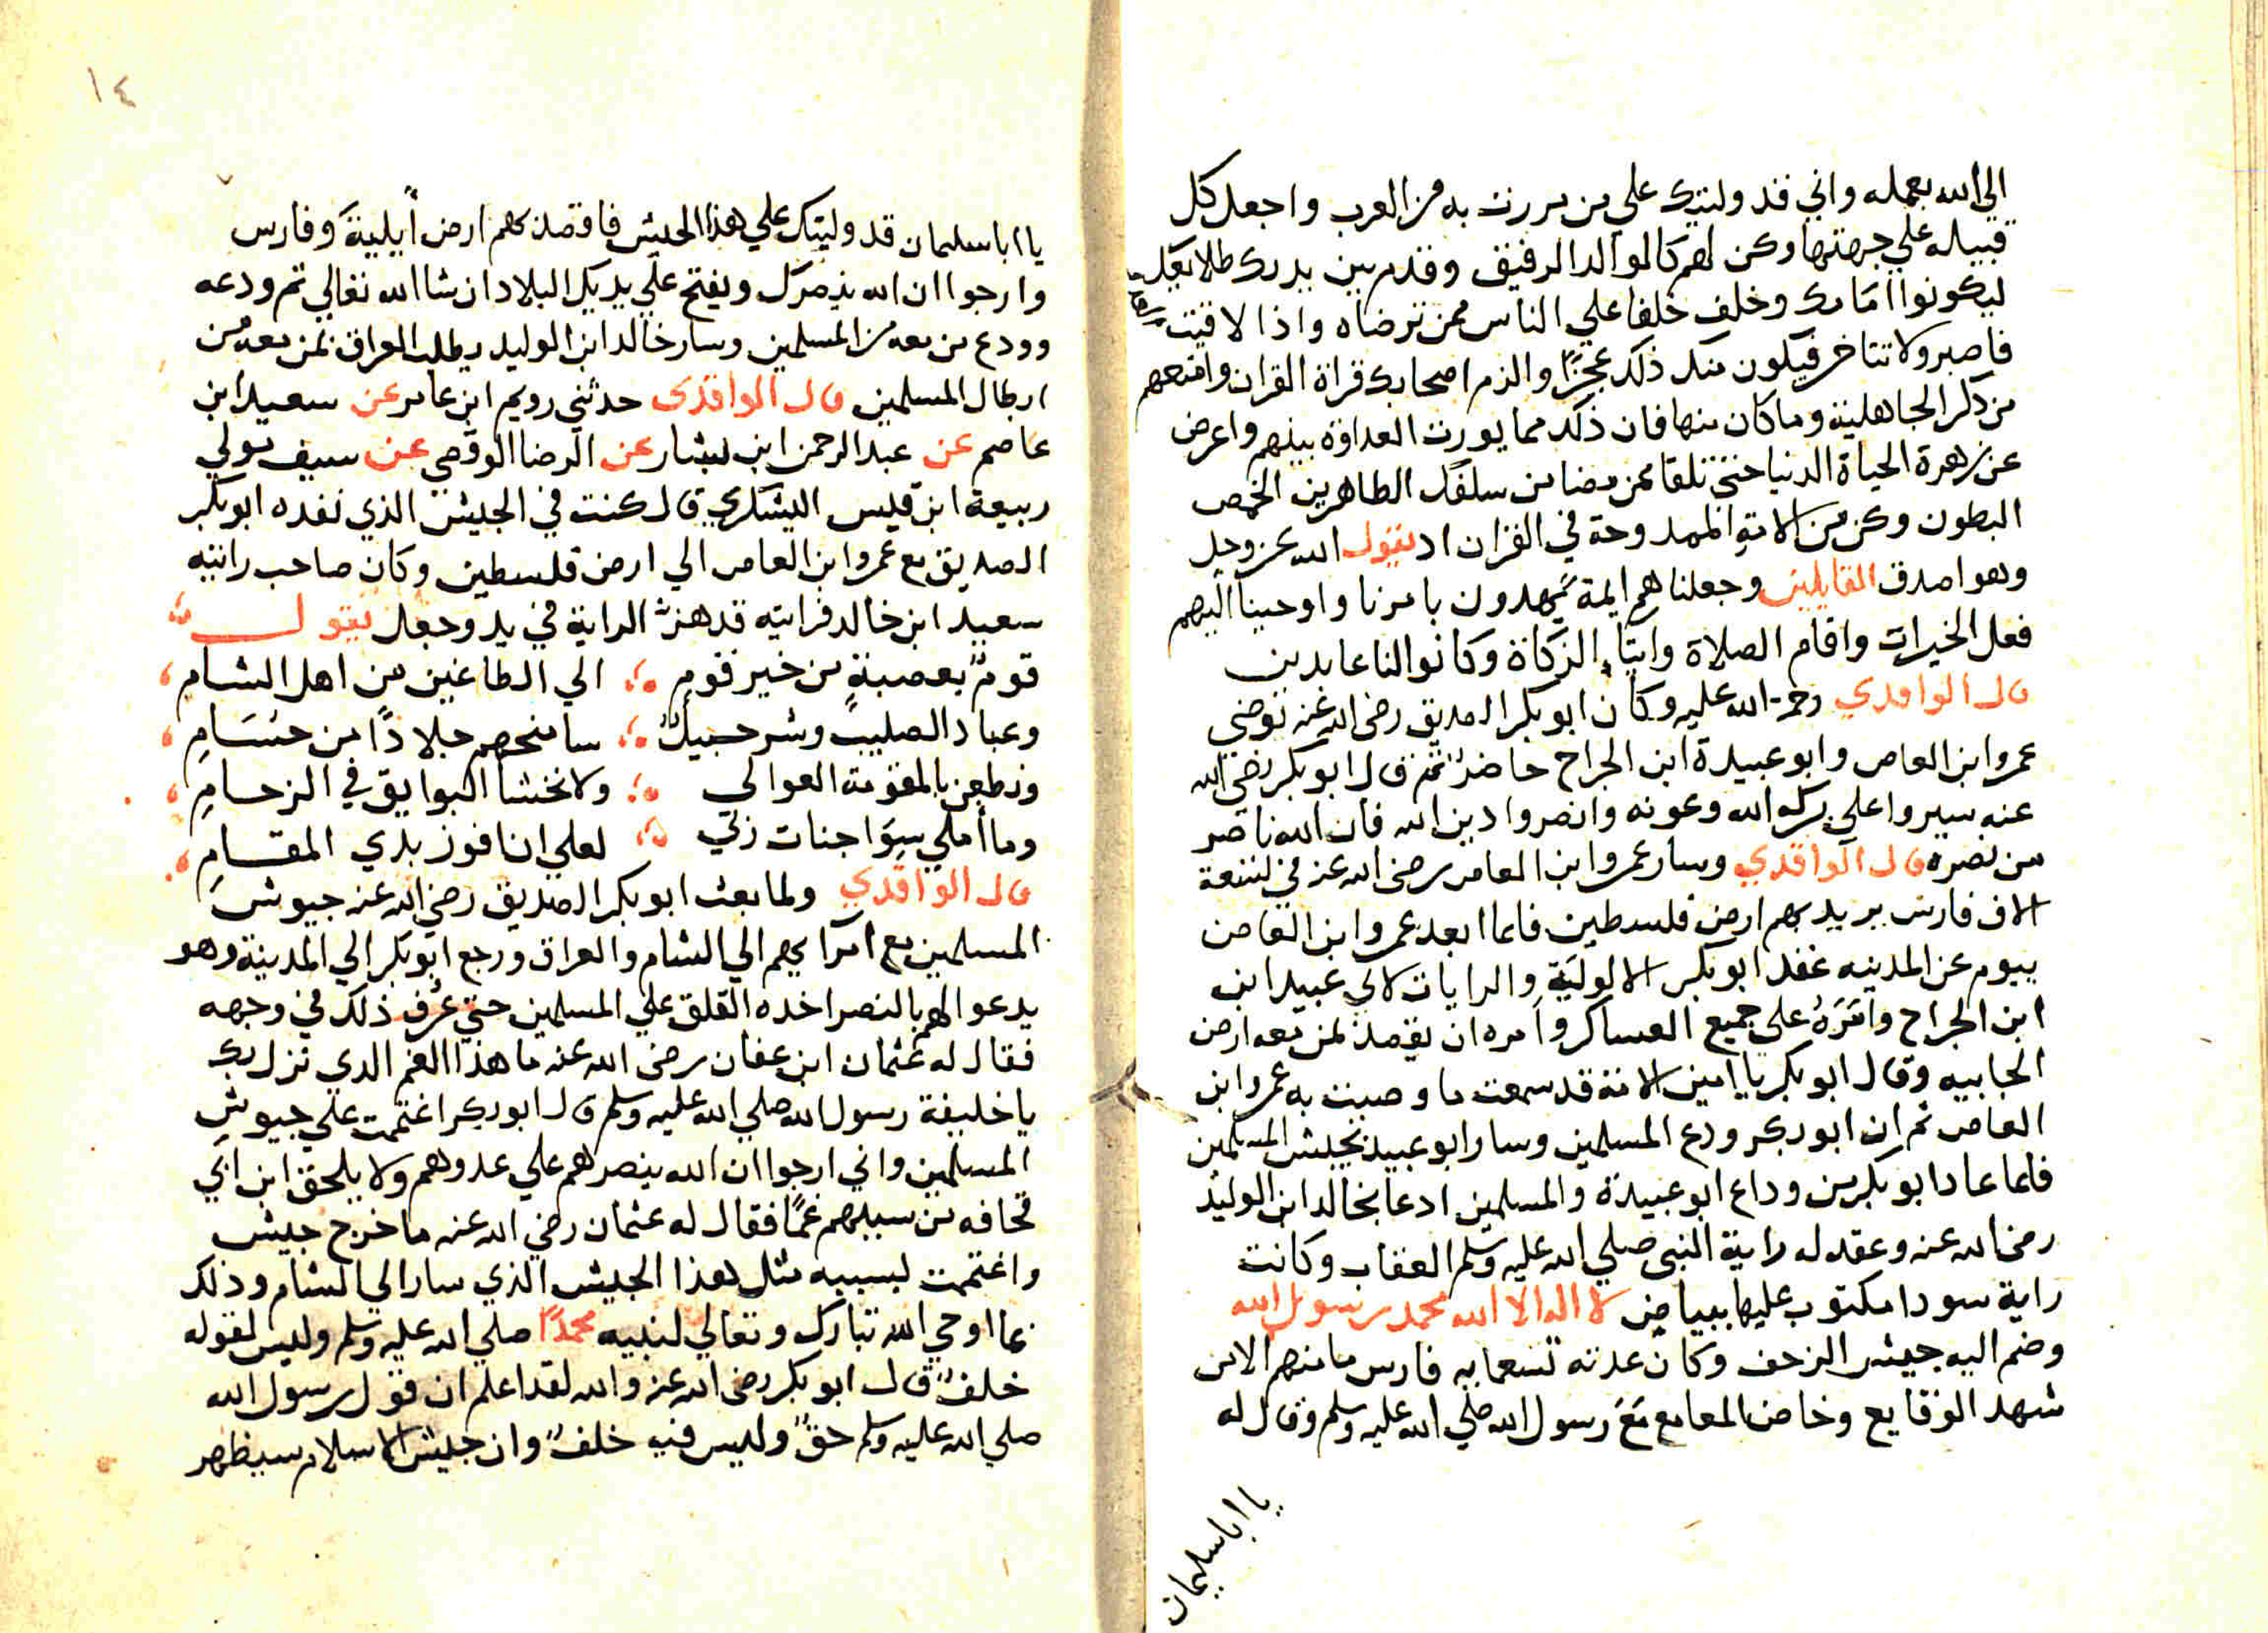 الي الله بعمله واني قد وليتك علي من مررت به من العرب واجعل كل
قبيله علي جهتها وكن لهم كالوالد الرفيق وقدم بين يديك طلايعك
ليكونوا امامك وخلف خلفا علي الناس ممن ترضاه واذا لاقيت
فاصبر ولا تتاخر فيكون منك ذلك عجزًا والزم اصحابك قراة القران وامنعهم
من ذكر الجاهلية وما كان منها فان ذلك مما يورث العداوة بينهم واعرض
عن زهرة الحياة الدنيا حتي تلقا ممن مضا من سلفك الطاهرين الخمص
البطون وكن من الامة الممدوحة في القران اد يقول الله عز وجل
وهو اصدق القايلين وجعلناهم ايمة يهدون بامرنا واوحينا اليهم
فعل الخيرات واقام الصلاة وايتاء الزكاة وكانوا لنا عابدين
قال الواقدي رحمة الله عليه وكان ابو بكر الصديق رضي الله عنه توضي
عمرو ابن العاص وابو عبيدة ابن الجراح حاضر ثم قال ابو بكر رضي الله
عنه سيروا علي بركه الله وعونه وانصروا دين الله فان الله ناصر
من نصره قال الواقدي وسار عمرو ابن العاص رضي الله عنه في تسعة
الاف فارس يريد بهم ارض فلسطين فلما ابعد عمرو ابن العاص
بيوم عن المدينه عقد ابو بكر الالولية والرايات لابي عبيد ابن
ابن الجراح وامَرَهُ علي جميع العساكر وامره ان يقصد بمن معه ارض
الجابيه وقال ابو بكر يا امين الامة قد سمعت ما وصيت به عمرو ابن
العاص ثم ان ابو بكر ودع المسلمين وسار ابو عبيد بجيش المسلمين
فلما عاد ابو بكر من وداع ابو عبيدة والمسلمين ادعا بخالد ابن الوليد
رضي الله عنه وعقد له راية النبي صلي الله عليه وسلم العقاب وكانت
راية سودا مكتوب عليها ببياض لا اله الا الله محمد رسول الله
وضم اليه جيش الزحف وكان عدته تسعمايه فارس ما منهم الا من
شهد الوقايع وخاض المعامع مَعَ رسول الله صلي الله عليه وسلم وقال له
يا ابا سليمان
١٤
يا ابا سليمان قد وليتك علي هذا الجيش فاقصد بهم ارض أيلية وفارس
وارجوا ان الله ينصرك ويفتح علي يديك البلاد ان شا الله تعالي ثم ودعه
وودع من معه من المسلمين وسار خالد ابن الوليد يطلب العراق بمن معه من
ابطال المسلمين قال الواقدي حدثني رويم ابن عامر عن سعيد ابن
عاصم عن عبد الرحمن ابن بشار عن الرضا الوقصي عن سيف مولي
ربيعة ابن قيس اليشكري قال كنت في الجيش الذي نفده ابو بكر
الصديق مع عمرو ابن العاص الي ارض فلسطين وكان صاحب رايته
سعيد ابن خالد فرايته قد هز الراية في يد وجعل يقول
قوم بعصبة من خير قوم الي الطاغين من اهل الشام
وعباد الصليب وشرحبيل سامنحهم جلادًا من حسَامِ
ونطعن بالمقومة العوالي ولا نخشا البوايق في الزحامِ
وما أملي سِوَا جنات ربي لعلي ان افوز بذي المقامِ
قال الواقدي ولما بعث ابو بكر الصديق رضي الله عنه جيوش
المسلمين مع امرايهم الي الشام والعراق ورجع ابو بكر الي المدينة وهو
يدعو لهم بالنصر اخده القلق علي المسلمين حتي عُرف ذلك في وجهه
فقال له عثمان ابن عفان رضي الله عنه ما هذا الغم الدي نزل بك
يا خليفة رسول الله صلي الله عليه وسلم قال ابو بكر اغتممت علي جيوش
المسلمين واني ارجوا ان الله ينصرهم علي عدوهم ولا يلحق ابن ابي
قحافه من سببهم غمًا فقال له عثمان رضي الله عنه ما خرج جيش
واغتممت لسببه مثل هذا الجيش الذي سار الي الشام وذلك
بما اوحي الله تبارك وتعالي لنبيه محمدًا صلي الله عليه وسلم وليس لقوله
خلفٌ قال ابو بكر رضي الله عنه والله لقد اعلم ان قول رسول الله
صلي الله عليه وسلم حقٌ وليس فيه خلفٌ وان جيش الاسلام سيظهر